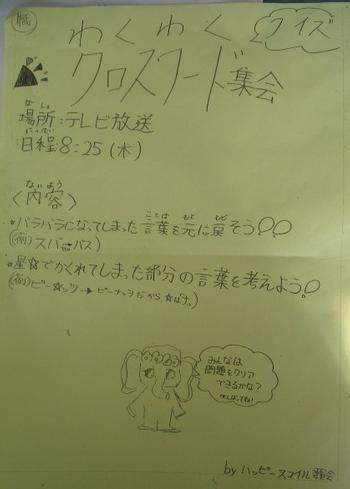 職
クイズ
わくわく
クロスワード集会
ばしょ
場所:テレビ放送
にってい
日程8:25(木)
ないよう
〈内容〉
バラバラになってしまった言葉を元に戻そう!!
ことば もと もど
(例)スバ→バス)
星☆でかくれてしまった部分の言葉を考えよう!
(例)ピー☆ッツ→ピーナッツだから、☆はナ。)
みんなは
問題をクリア
できるかな?
がんばってね!
byハッピースマイル集会